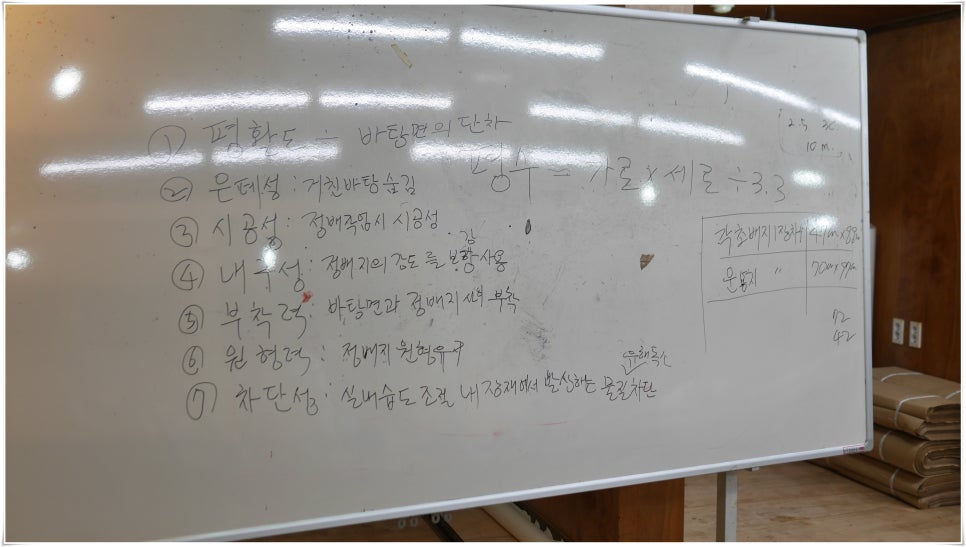 ① 평활도 : 바탕면의 단차
② 은폐성 : 거친바탕 숨김
③ 시공성 : 정배작업시 시공성
④ 내구성 : 정배지의 강도를 보강 사용
⑤ 부착력 : 바탕면과 정배지 부착
⑥ 원형력 : 정배지 원형유지
⑦ 차단성 : 실내습도 조절 내장재에서 발산하는 물질차단
유해독소
평수 = 가로 x 세로 ÷ 3.3
10 m
각초배지
운용지 "
72
42